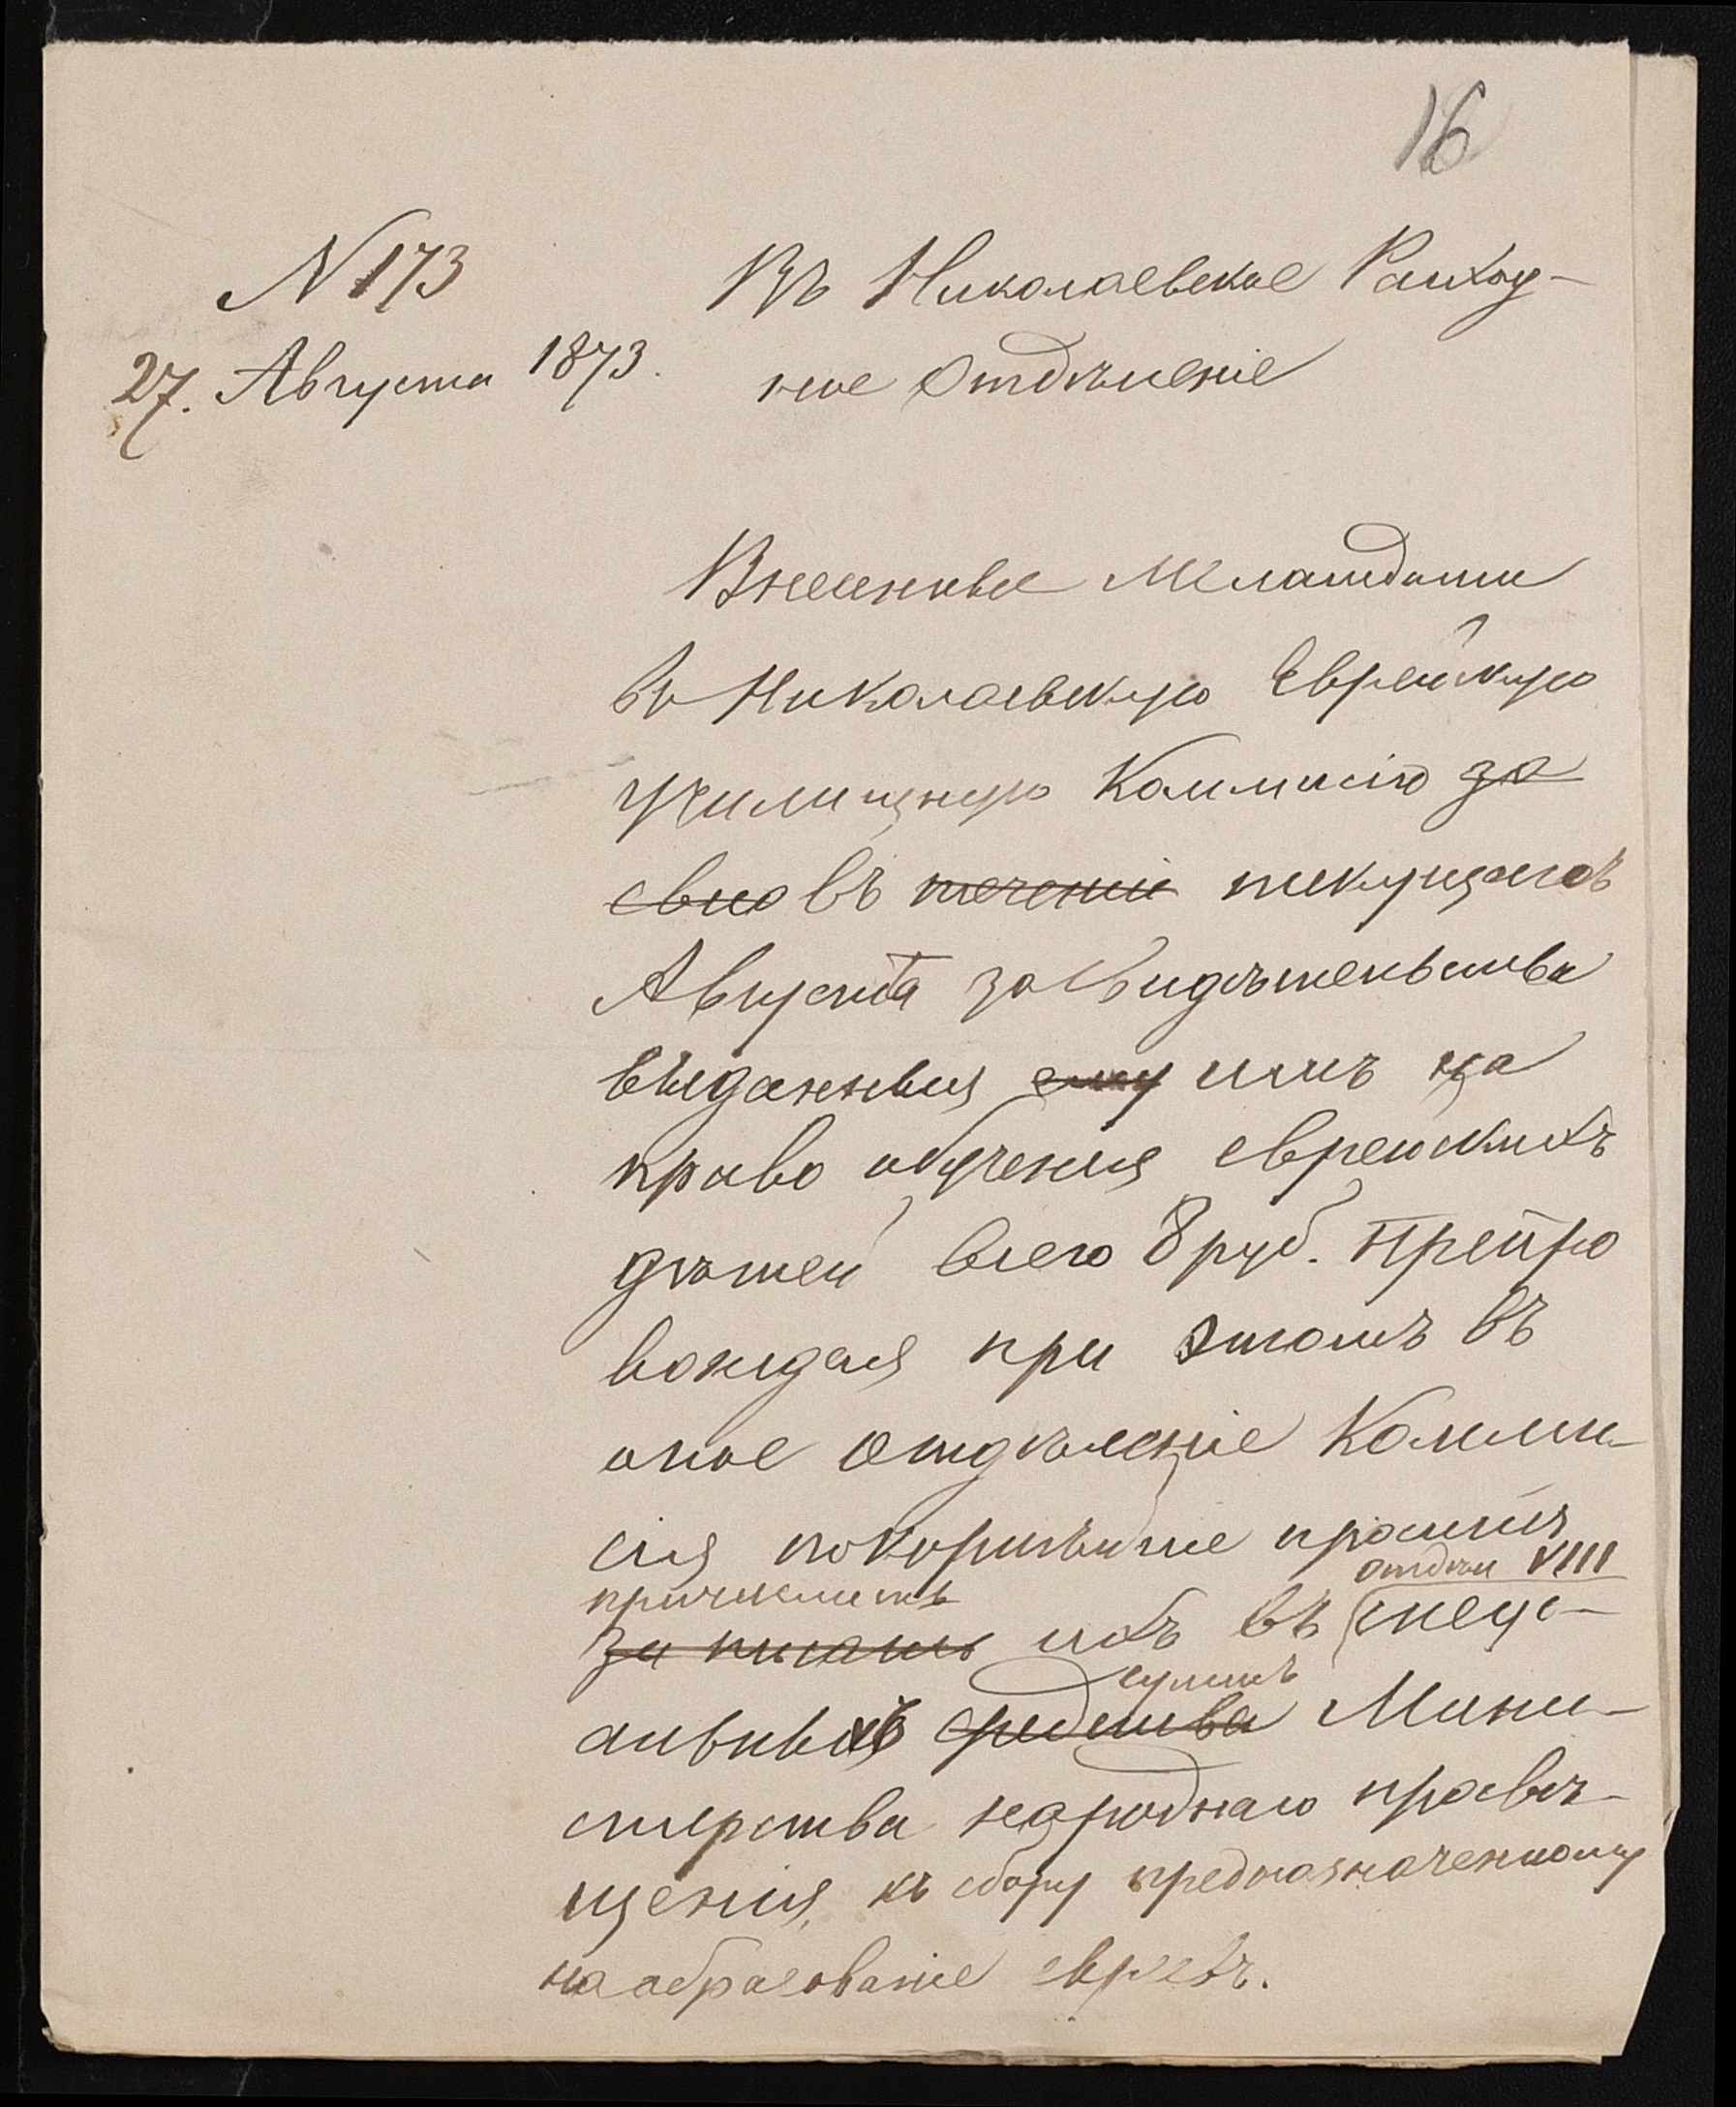 16
N 173
27. Августа 1873.
Въ Николаевское Расход-
ное Отдѣленіе
Внесенные Меламдами
въ Николаевскую Еврейскую
училищную Коммисію за
въ теченіи текущаго
Августа за свидѣтельства
выданныя ему имъ на
право обученія еврейскихъ
дѣтей всего 8 руб. Препро
вождая при этомъ въ
оное отдѣленіе Комми-
сія покорнѣйше проситъ
отдѣл VIII
причислить
за писать ихъ въ спеці-
суммъ
альныхъ средства Мини-
стерства народнаго просвѣ-
щенія, къ сбору предназначенному
на образованіе евреевъ.